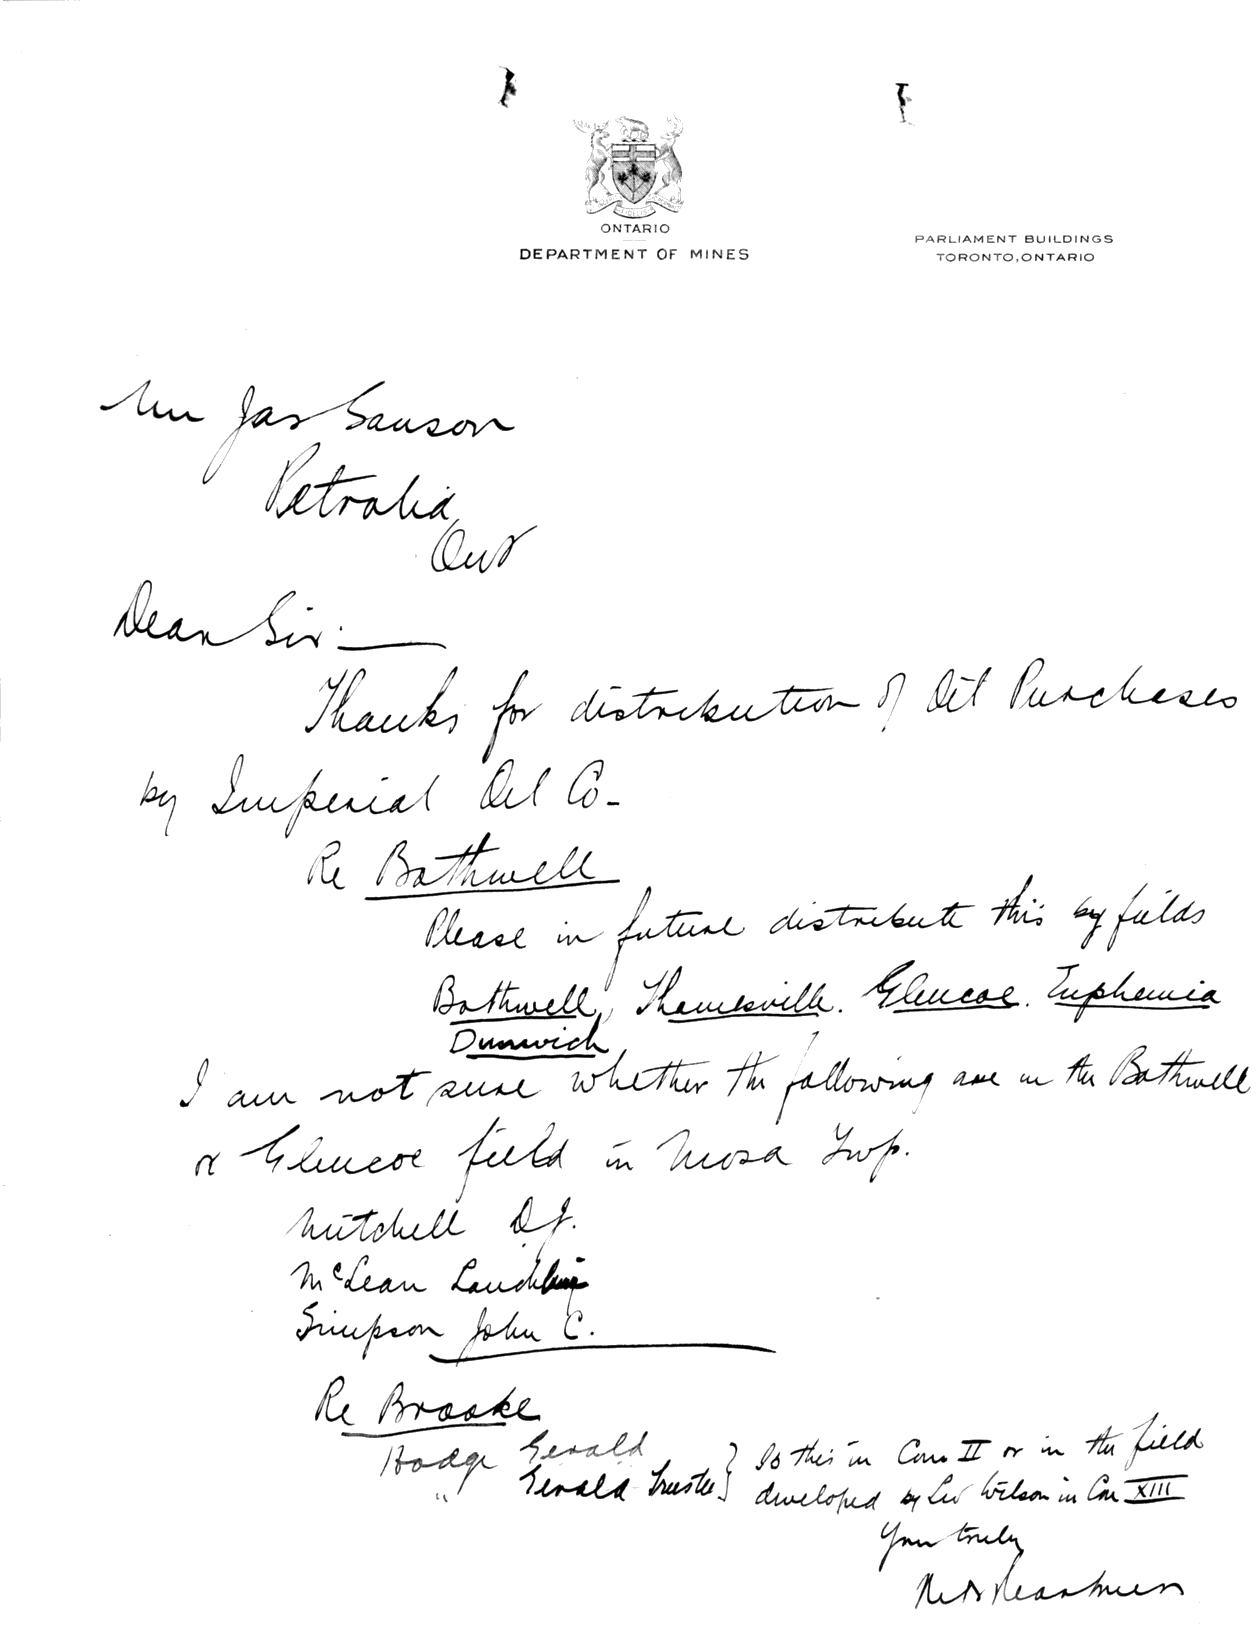 ONTARIO
DEPARTMENT OF MINES
PARLIAMENT BUILDINGS
TORONTO, ONTARIO
Mr Jas Sanson
Petrolia
Ont
Dear Sir:—
Thanks for distribution of Oil Purchases
by Imperial Oil Co-
Re Bothwell
Please in future distribute this by fields
Bothwell, Thamesville. Glencoe. Euphemia
Dunwich
I am not sure whether the following are in the Bothwell
or Glencoe field in Mosa Twp.
Mitchell D.J.
McLean
Simpson John C.
Re Brooke
Hodge Gerald
" Gerald Trustee } Is this in Con II or in the field
developed by Lew Wilson in Con XIII
Yours truly